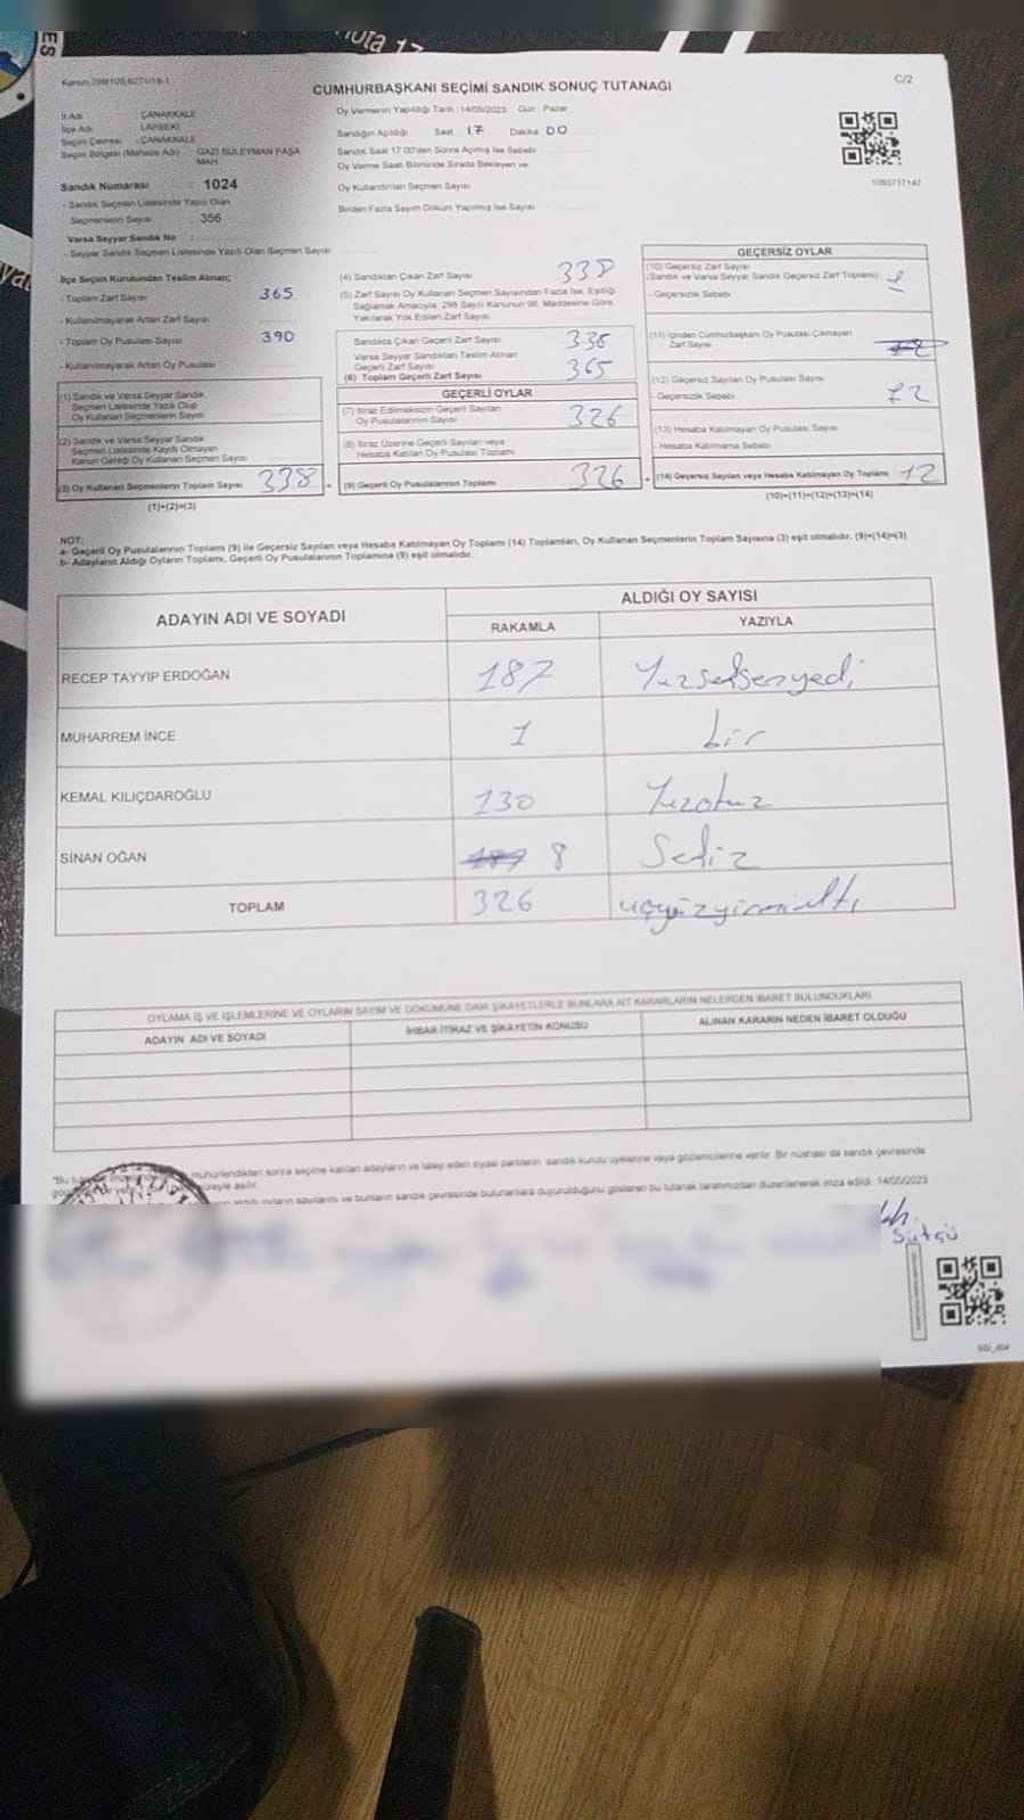 ES
nota 17
Kanun 298/105,6271/19-1
CUMHURBAŞKANI SEÇİMİ SANDIK SONUÇ TUTANAĞI
C/2
İl Adı : ÇANAKKALE
İlçe Adı : LAPSEKİ
Seçim Çevresi : ÇANAKKALE
Seçim Bölgesi (Mahalle Adı) : GAZİ SÜLEYMAN PAŞA MAH.
Sandık Numarası : 1024
- Sandık Seçmen Listesinde Yazılı Olan
Seçmenlerin Sayısı : 356
Varsa Seyyar Sandık No :
- Seyyar Sandık Seçmen Listesinde Yazılı Olan Seçmen Sayısı
Oy Vermenin Yapıldığı Tarih : 14/05/2023 Gün : Pazar
Sandığın Açıldığı Saat 17 Dakika 00
Sandık Saat 17.00'den Sonra Açılmış İse Sebebi
Oy Verme Saati Bitiminde Sırada Bekleyen ve
Oy Kullandırılan Seçmen Sayısı
Birden Fazla Sayım Döküm Yapılmış İse Sayısı
1093717147
İlçe Seçim Kurulundan Teslim Alınan;
- Toplam Zarf Sayısı 365
- Kullanılmayarak Artan Zarf Sayısı
- Toplam Oy Pusulası Sayısı 390
- Kullanılmayarak Artan Oy Pusulası
(1) Sandık ve Varsa Seyyar Sandık
Seçmen Listesinde Yazılı Olup
Oy Kullanan Seçmenlerin Sayısı
(2) Sandık ve Varsa Seyyar Sandık
Seçmen Listesinde Kayıtlı Olmayan
Kanun Gereği Oy Kullanan Seçmen Sayısı
(3) Oy Kullanan Seçmenlerin Toplam Sayısı 338
(1)+(2)=(3)
(4) Sandıktan Çıkan Zarf Sayısı 338
(5) Zarf Sayısı Oy Kullanan Seçmen Sayısından Fazla İse, Eşitliği
Sağlamak Amacıyla, 298 Sayılı Kanunun 98. Maddesine Göre
Yakılarak Yok Edilen Zarf Sayısı
Sandıkta Çıkan Geçerli Zarf Sayısı 338
Varsa Seyyar Sandıktan Teslim Alınan
Geçerli Zarf Sayısı
(6) Toplam Geçerli Zarf Sayısı 365
GEÇERLİ OYLAR
(7) İtiraz Edilmeksizin Geçerli Sayılan
Oy Pusulalarının Sayısı 326
(8) İtiraz Üzerine Geçerli Sayılan veya
Hesaba Katılan Oy Pusulası Toplamı
(9) Geçerli Oy Pusulalarının Toplamı 326
GEÇERSİZ OYLAR
(10) Geçersiz Zarf Sayısı
(Sandık ve Varsa Seyyar Sandık Geçersiz Zarf Toplamı)
- Geçersizlik Sebebi
(11) İçinden Cumhurbaşkanı Oy Pusulası Çıkmayan
Zarf Sayısı
(12) Geçersiz Sayılan Oy Pusulası Sayısı
- Geçersizlik Sebebi 12
(13) Hesaba Katılmayan Oy Pusulası Sayısı
- Hesaba Katılmama Sebebi
(14) Geçersiz Sayılan veya Hesaba Katılmayan Oy Toplamı 12
(10)+(11)+(12)+(13)=(14)
NOT:
a- Geçerli Oy Pusulalarının Toplamı (9) ile Geçersiz Sayılan veya Hesaba Katılmayan Oy Toplamı (14) Toplamları, Oy Kullanan Seçmenlerin Toplam Sayısına (3) eşit olmalıdır. (9)+(14)=(3)
b- Adayların Aldığı Oyların Toplamı, Geçerli Oy Pusulalarının Toplamına (9) eşit olmalıdır.
ADAYIN ADI VE SOYADI
ALDIĞI OY SAYISI
RAKAMLA YAZIYLA
RECEP TAYYİP ERDOĞAN 187 Yüzseksenyedi
MUHARREM İNCE 1 bir
KEMAL KILIÇDAROĞLU 130 Yüzotuz
SİNAN OĞAN 8 Sekiz
TOPLAM 326 üçyüzyirmialtı
OYLAMA İŞ VE İŞLEMLERİNE VE OYLARIN SAYIM VE DÖKÜMÜNE DAİR ŞİKAYETLERLE BUNLARA AİT KARARLARIN NELERDEN İBARET BULUNDUKLARI
ADAYIN ADI VE SOYADI İHBAR İTİRAZ VE ŞİKAYETİN KONUSU ALINAN KARARIN NEDEN İBARET OLDUĞU
mühürlendikten sonra seçime katılan adayların ve talep eden siyasi partilerin sandık kurulu üyelerine veya gözlemcilerine verilir. Bir nüshası da sandık çevresinde
süreyle asılır.
oyların sayılarını ve bunların sandık çevresinde bulunanlara duyurulduğunu gösteren bu tutanak tarafımızdan düzenlenerek imza edildi. 14/05/2023
Sütçü